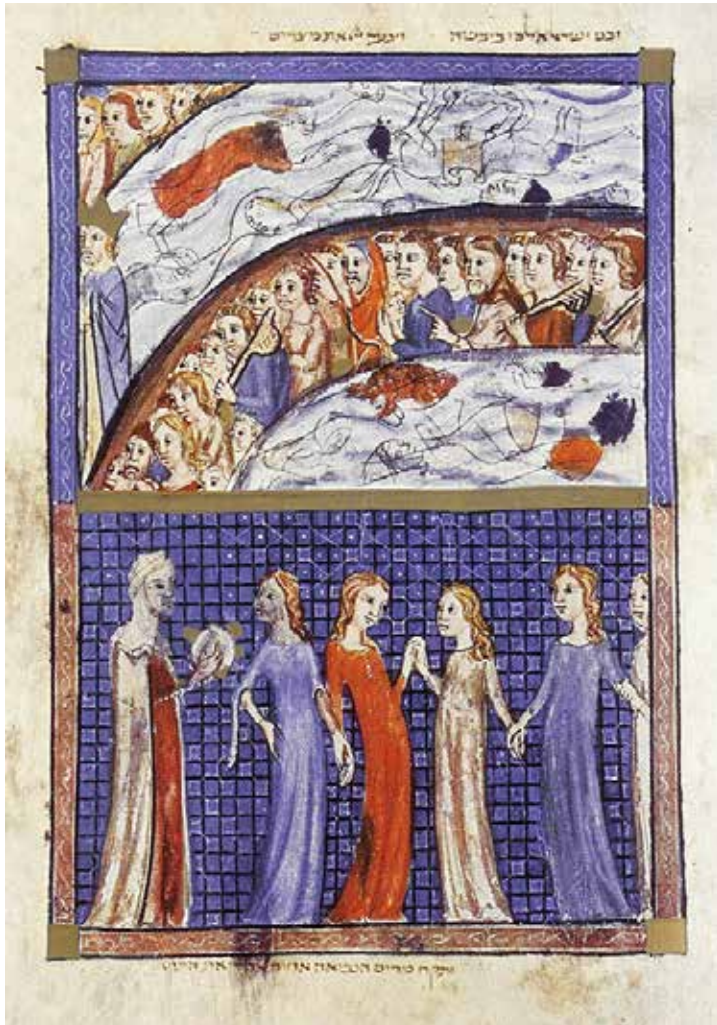 ובני ישראל הלכו ביבשה וינער יי את מצרים
ותקח מרים הנביאה אחות אהרן את התף